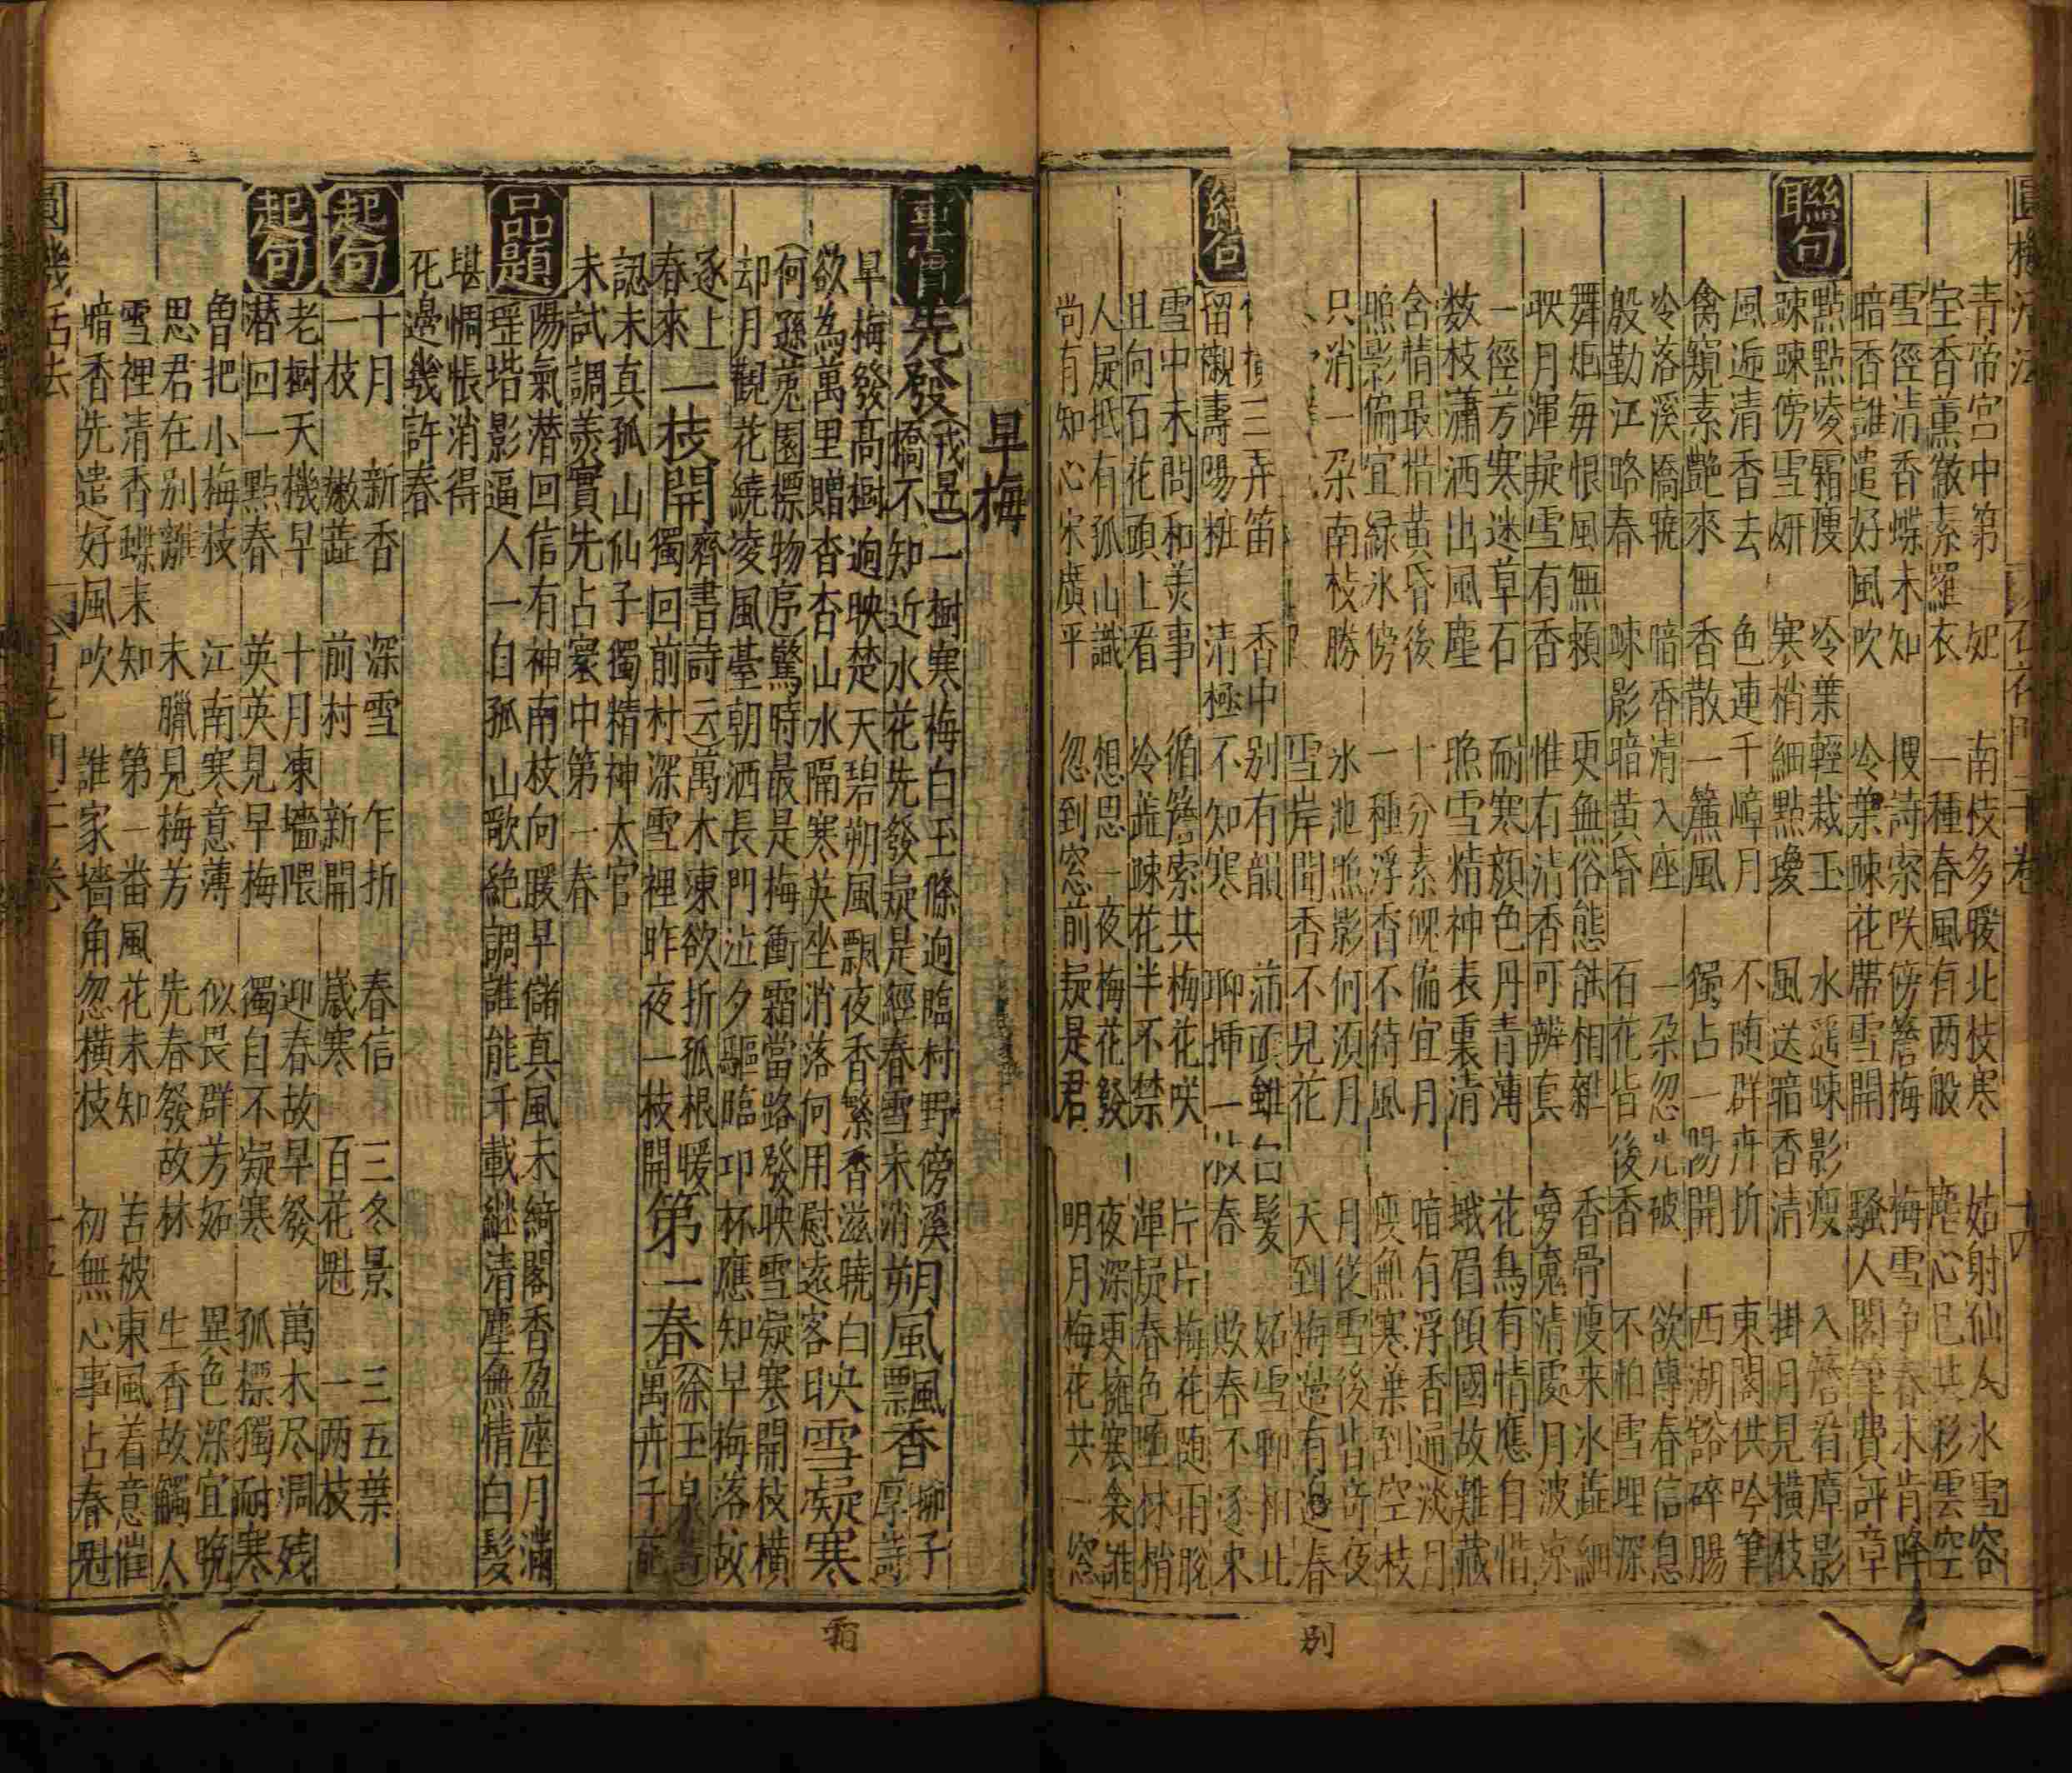 圓機活法 百花門二十卷 十四
青帝宮中第 妃 南枝多暖北枝寒 姑射仙人氷雪容
宝香薰散素羅衣 一種春風有两般 塵心已共彩雲空
雪徑清香蝶未知 搜詩索咲傍簷梅 梅雪争春未肯降
暗香誰遣好風吹 冷蘂踈花帶雪開 騷人閣筆費評章
聯句
點點凌霜痩 冷葉輕栽玉 水遥踈影瘦 入簷看影
踈踈傍雪妍 寒梢細點瓊 風送暗香清 掛月見横枝
風逓清香去 色連千嶂月 不随群卉折 東閣供吟筆
禽窺素艶來 香散一簾風 獨占一陽開 西湖豁碎腸
冷落溪橋暁 暗香清入座 一朶忽先破 欲傳春信息
殷勤江路春 踈影暗黄昏 石花皆後香 不怕雪埋深
舞 毎恨風無頼 更無俗態能相雜 香骨瘦来氷蘂細
映月渾疑雪有香 惟有清香可辨真 夢魂清處月波凉
一徑芳寒迷草石 耐寒顔色丹青薄 花鳥有情應自惜
数枝瀟洒出風塵 照雪精神表裏清 蛾眉傾國故難藏
含情最惜黄昏後 十分素 偏宜月 暗有浮香通淡月
照影偏宜緑氷傍 一種浮香不待風 瘦無寒葉到空枝
只消一朶南枝勝 氷池照影何須月 月後雪後皆奇夜
雪岸聞香不見花 天到梅邉有 春
絶句
三弄笛 香中别有韻 蒲頭雖白髮 妬雪聊相比
留襯壽陽粧 清極不知寒 聊揷一枝春 欺春不逐來
雪中未問和羮事 循簷索共梅花咲 片片梅花随雨脱
且向石花頭上看 冷蘂踈花半不禁 渾疑春色堕林梢
人疑抵有孤山識 想思一夜梅花發 夜深更擁寒衾誰
尚有知心宋廣平 忽到窓前疑是君 明月梅花共一窓
别
早梅
事實
先發
(戎昱)一樹寒梅白玉條逈臨村野傍溪
橋不知近水花先發疑是經春雪未消
朔風飄香
柳子
厚詩
早梅發高樹逈映楚天碧朔風飄夜香繁香滋暁白
欲為萬里贈杳杳山水隔寒英坐消落何用慰遠客
映雪凝寒
(何遜)莵園標物序驚時最是梅衝霜當路發映雪凝寒開枝横
却月觀花繞凌風臺朝洒長門泣夕驅臨卭杯應知早梅落故
逐上
春來
一枝開
齊書詩云萬木凍欲折孤根暖
獨回前村深雪裡昨夜一枝開
第一春
(徐玉泉詩)
萬卉千葩
認未真孤山仙子獨精神太官
未試調羮實先占寰中第一春
品題
陽氣潜回信有神南枝向暖早儲真風未綺閣香盈座月滿
瑶堦影逼人一自孤山歌絶調誰能千載継清塵無情白髮
堪惆悵消得
花邉幾許春
起句
十月新香 深雪乍折 春信三冬景 三五葉
一枝嫩蘂 前村新開 歳寒百花魁 一两枝
起句
老樹天機早 十月凍墻喂 迎春故早發 萬木尽凋残
潜回一點春 英英見早梅 獨自不凝寒 孤標獨耐寒
曽把小梅枝 江南寒意薄 似畏群芳妬 異色深宜晚
思君在别離 未臘見梅芳 先春發故林 生香故觸人
雪裡清香蝶未知 第一畨風花未知 苦被東風着意催
暗香先遣好風吹 誰家墻角忽横枝 初無心事占春魁
圓機活法 百花門二十卷 十五
霜